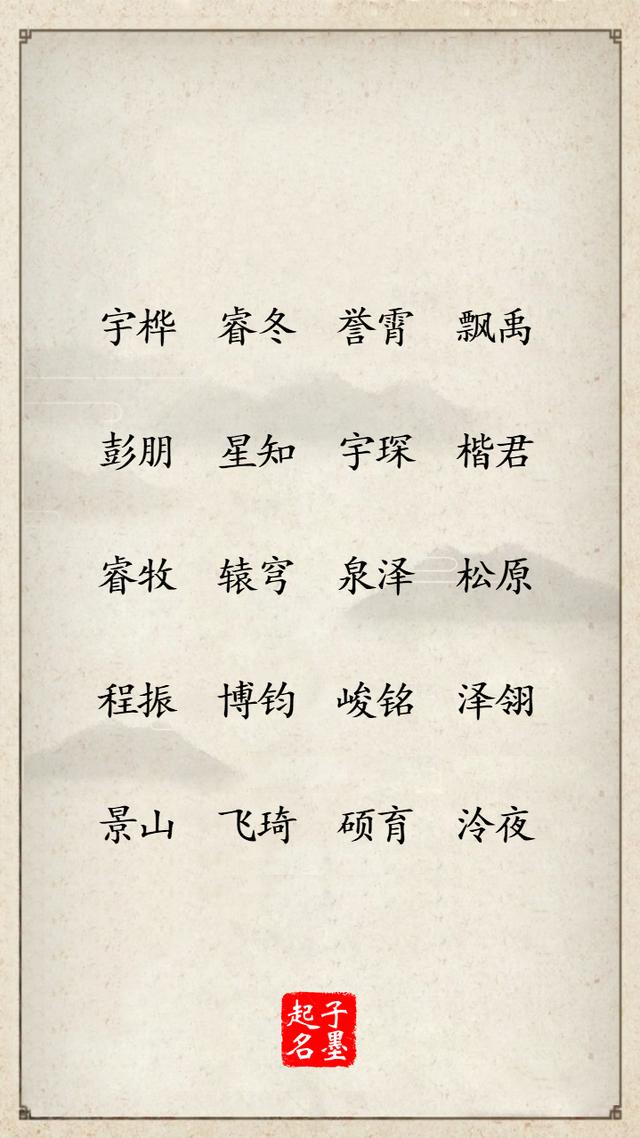 宇桦 睿冬 誉霄 飘禹
彭朋 星知 宇琛 楷君
睿牧 辕穹 泉泽 松原
程振 博钧 峻铭 泽翎
景山 飞琦 硕育 泠夜
子墨
起名